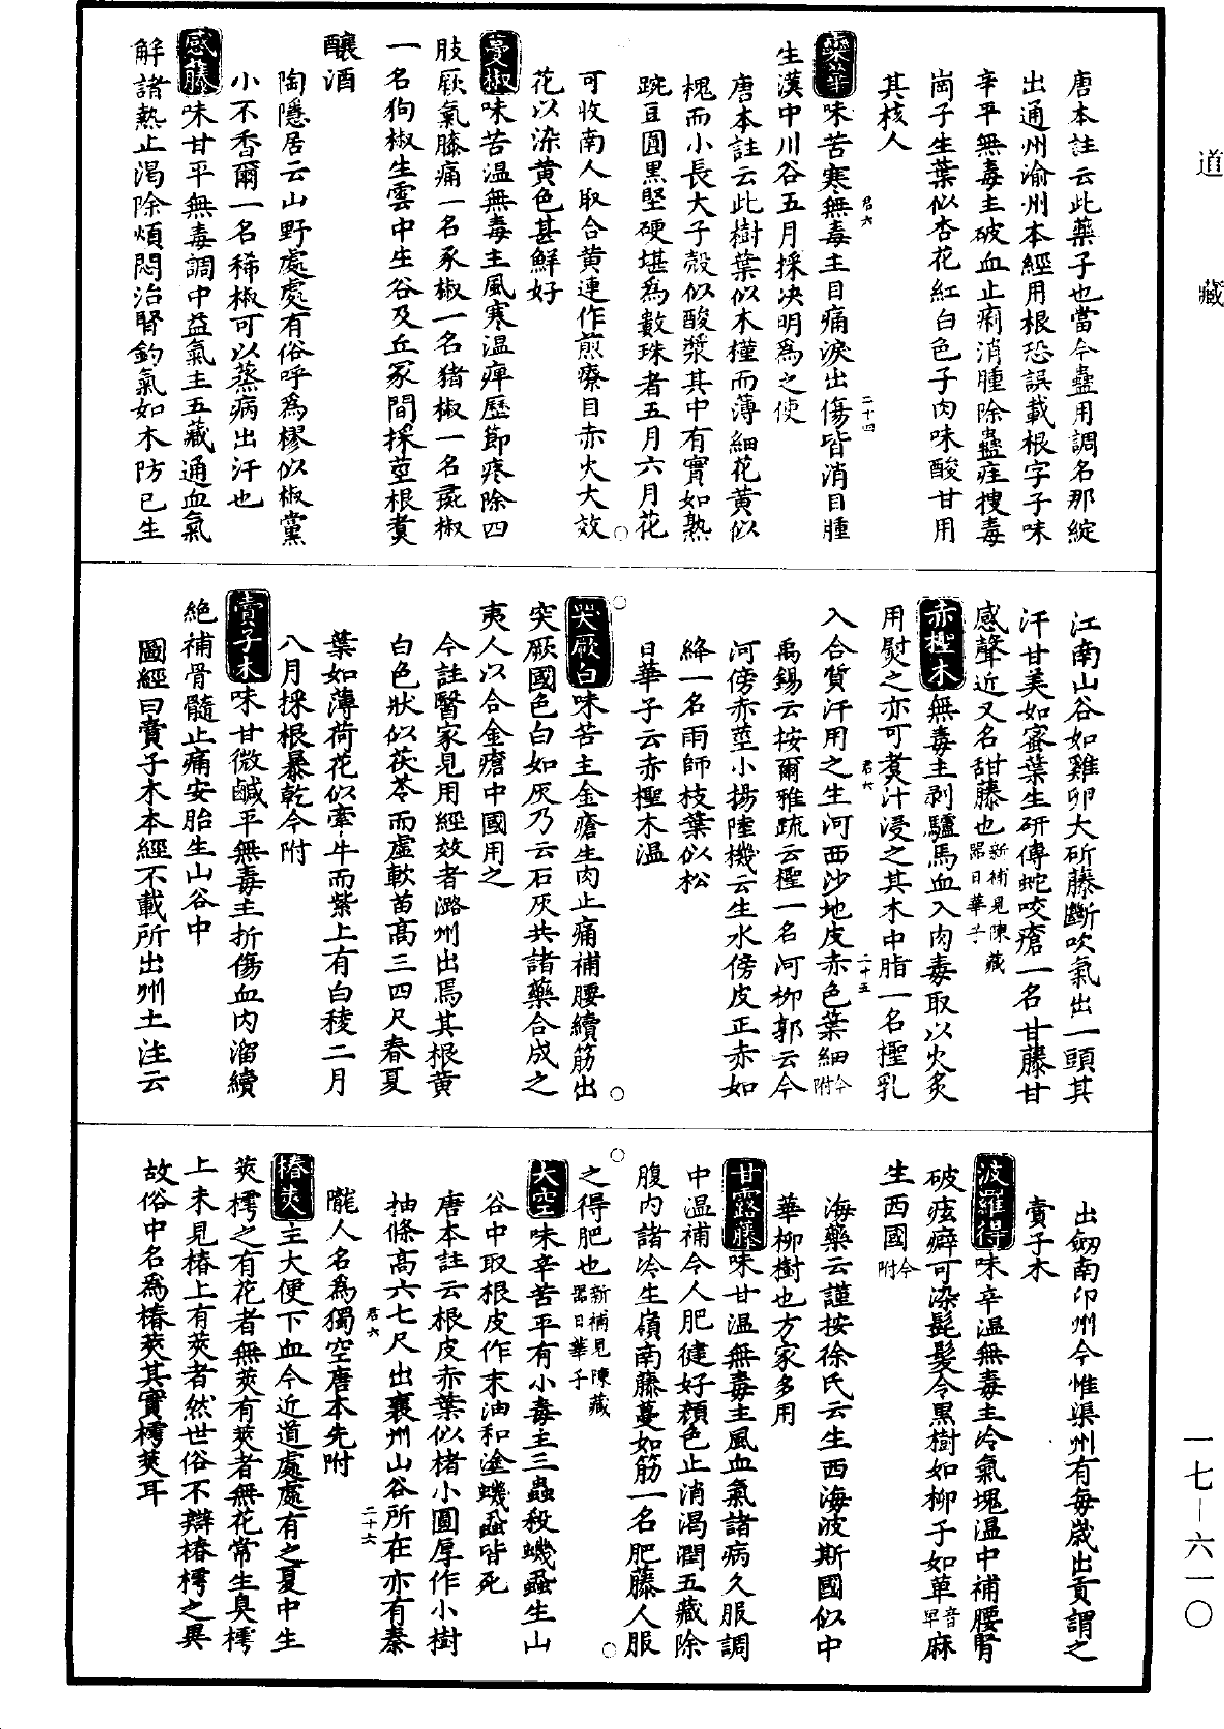 道藏
唐本註云此藥子也當今蠱用調名那綻
出通州渝州本經用根恐誤載根字子味
辛平無毒主破血止痢消腫除蠱疰搜毒
崗子生葉似杏花紅白色子肉味酸甘用
其核人
君六
二十四
欒華味苦寒無毒主目痛淚出傷眥消目腫
生漢中川谷五月採決明為之使
唐本註云此樹葉似木槿而薄細花黃似
槐而小長大子殼似酸漿其中有實如熟
豌豆圓黑堅硬堪為數珠者五月六月花
可收南人取合黃連作煎療目赤火大效
花以染黃色甚鮮好
蔓椒味苦溫無毒主風寒溫痺歷節疼除四
肢厥氣膝痛一名豕椒一名猪椒一名彘椒
一名狗椒生雲中生谷及丘冢間採莖根煑
釀酒
陶隱居云山野處處有俗呼為樛似椒黨
小不香爾一名稀椒可以蒸病出汗也
感藤味甘平無毒調中益氣主五藏通血氣
解諸熱止渴除煩悶治腎釣氣如木防已生
江南山谷如雞卯大斫藤斷吹氣出一頭其
汗甘美如蜜葉生研傅蛇咬瘡一名甘藤甘
感聲近又名甜藤也新補見陳藏器日華子
赤檉木無毒主剥驢馬血入肉毒取以火炙
用熨之亦可煑汁浸之其木中脂一名檉乳
君六
二十五
入合質汗用之生河西沙地皮赤色葉細今附
禹錫云按爾雅疏云檉一名河柳郭云今
河傍赤莖小揚陸機云生水傍皮正赤如
絳一名雨師枝葉似松
日華子云赤檉木溫
突厥白味苦主金瘡生肉止痛補腰續筋出
突厥國色白如灰乃云石灰共諸藥合成之
夷人以合金瘡中國用之
今註醫家見用經效者潞州出焉其根黃
白色狀似茯苓而虛軟苗高三四尺春夏
葉如薄荷花似牽牛而紫上有白稜二月
八月採根暴乾今附
賣子木味甘微鹹平無毒主折傷血內溜續
絶補骨髓止痛安胎生山谷中
圖經曰賣子木本經不載所出州土注云
出劒南卬州今惟渠州有每歲出貢謂之
賣子木
波羅得味辛溫無毒主冷氣塊溫中補腰腎
破痃癖可染髭髮令黑樹如柳子如萆音早麻
生西國今附
海藥云謹按徐氏云生西海波斯國似中
華柳樹也方家多用
甘露藤味甘溫無毒主風血氣諸病久服調
中溫補令人肥健好顏色止消渴潤五藏除
腹內諸冷生嶺南藤蔓如筋一名肥藤人服
之得肥也新補見陳藏器日華子
大空味辛苦平有小毒主三蟲殺蟣蝨生山
谷中取根皮作末油和塗蟣蝨皆死
唐本註云根皮赤葉似楮小圓厚作小樹
抽條高六七尺出襄州山谷所在亦有秦
君六
二十六
隴人名為獨空唐本先附
椿莢主大便下血今近道處處有之夏中生
莢樗之有花者無莢有莢者無花常生臭樗
上未見椿上有莢者然世俗不辯椿樗之異
故俗中名為椿莢其實樗莢耳
一七－六一〇